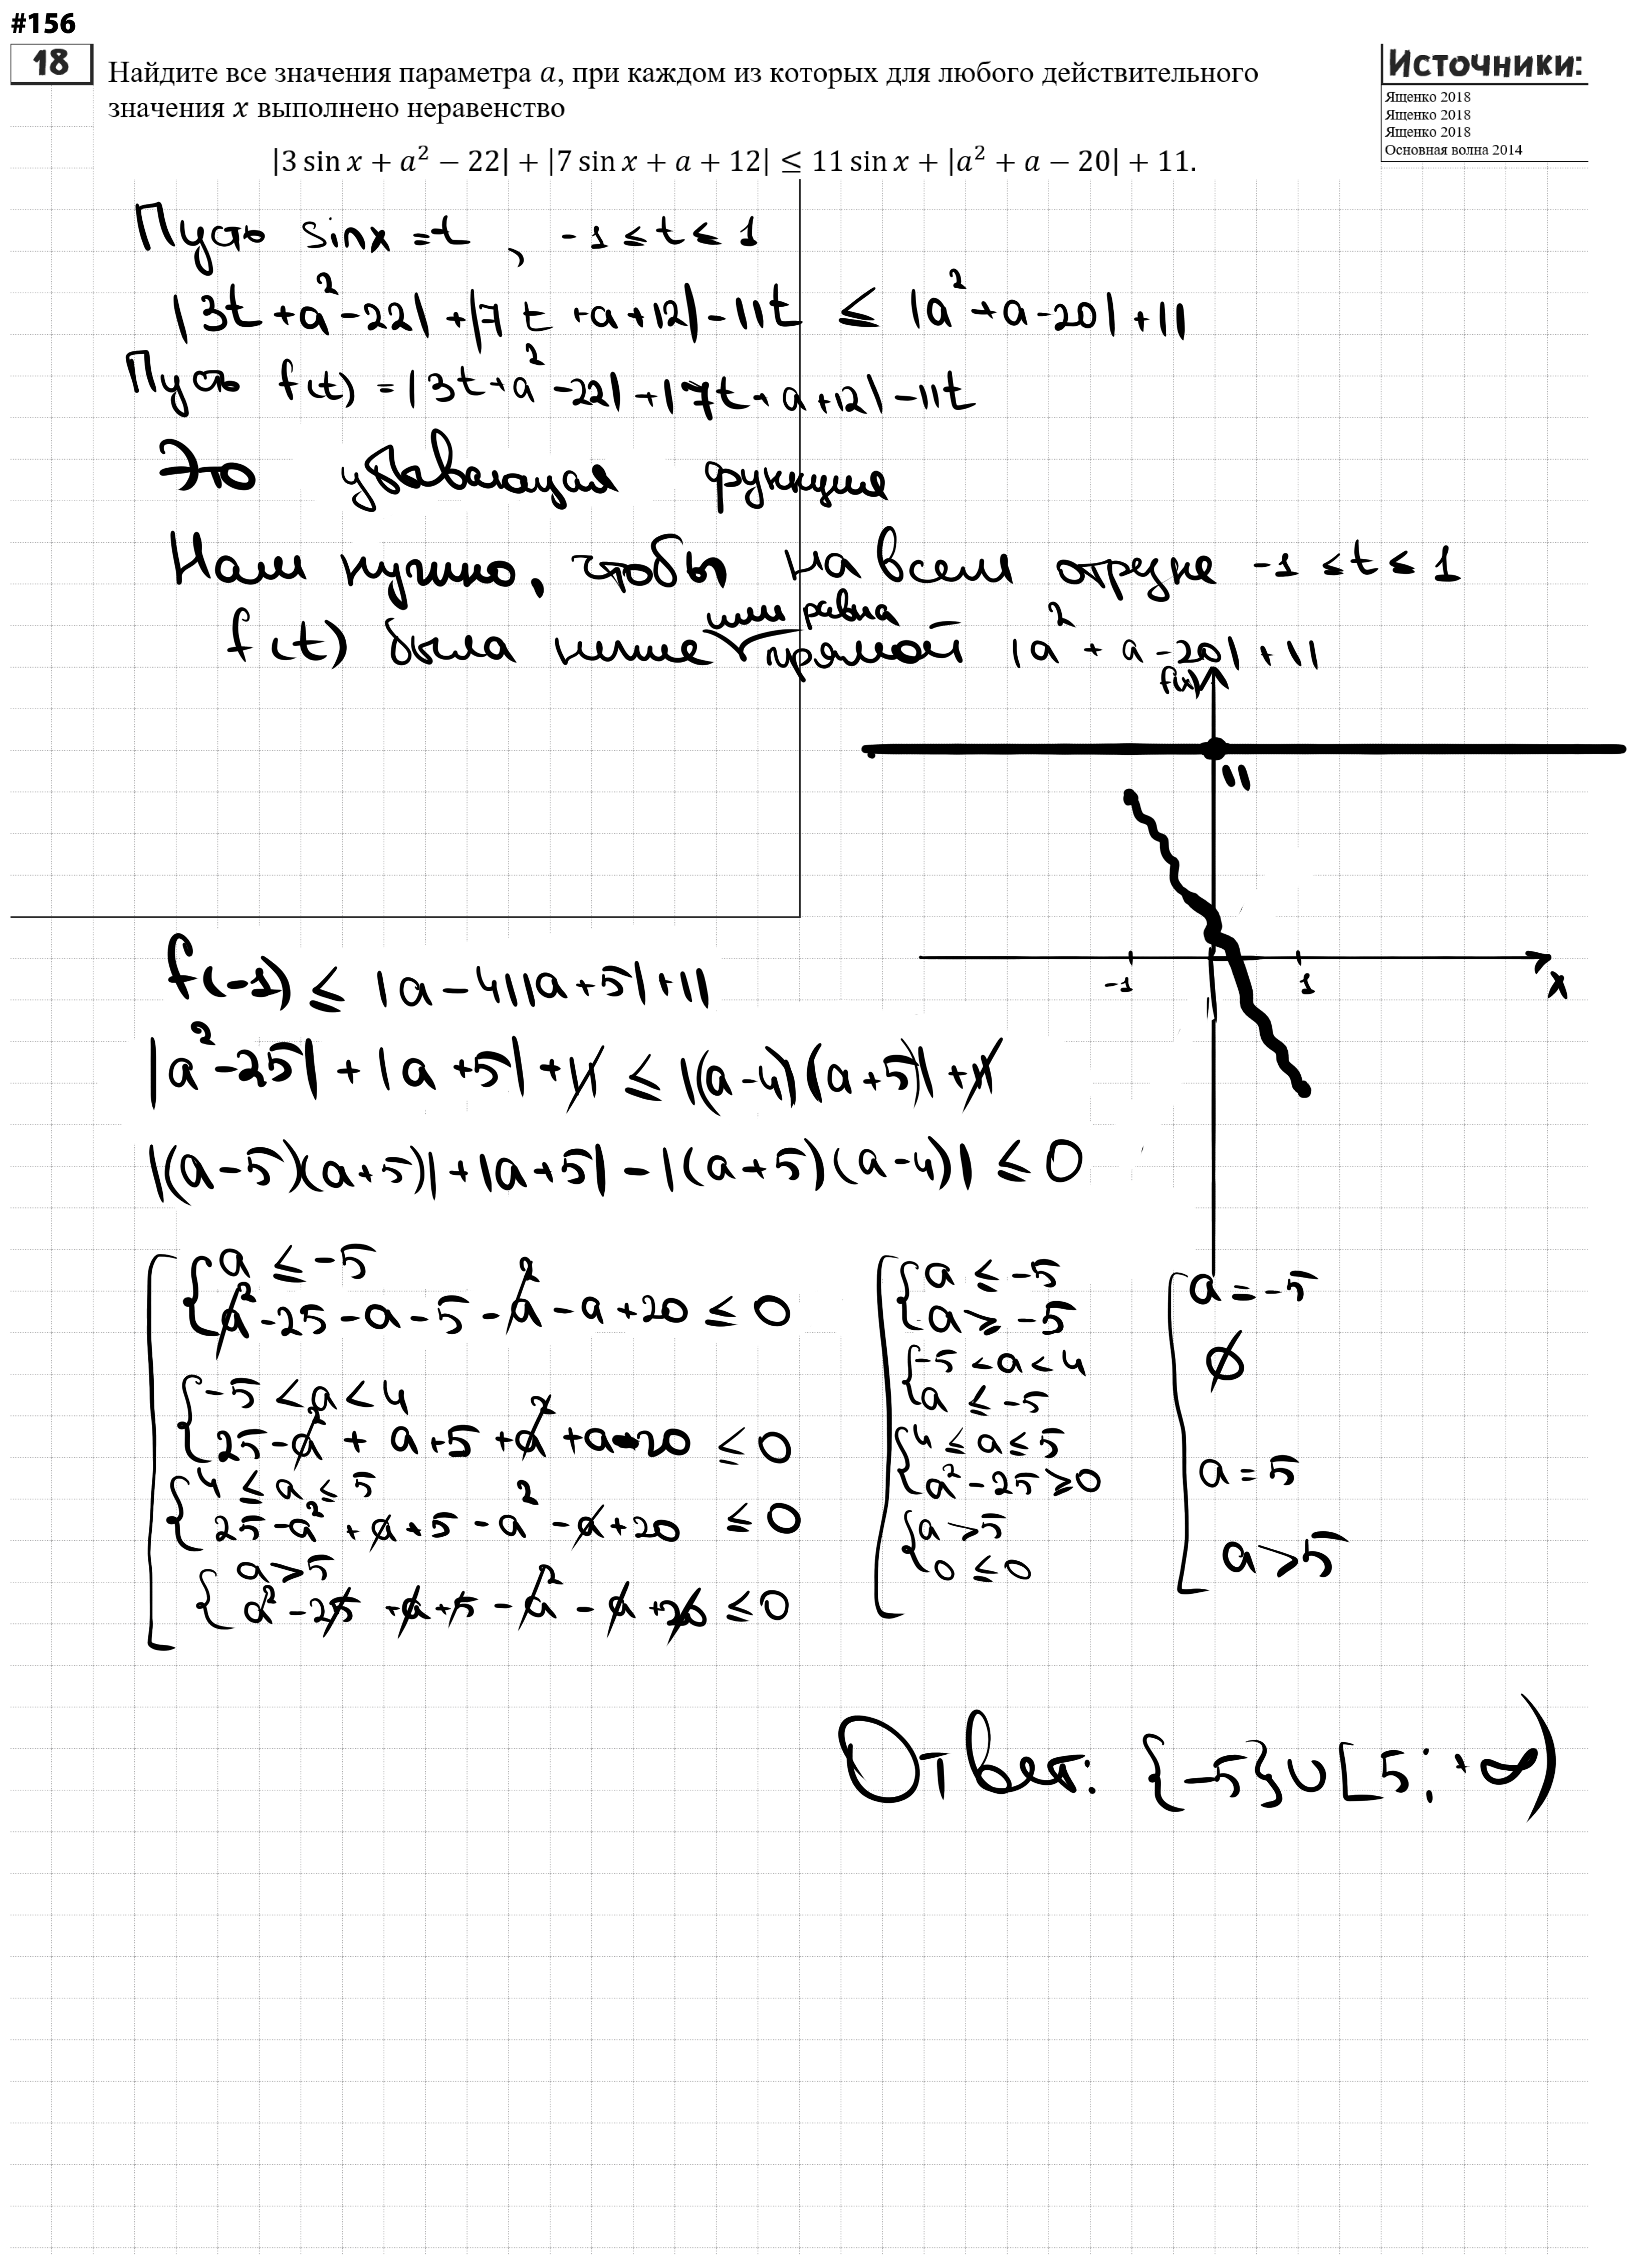 #156
18
Найдите все значения параметра a, при каждом из которых для любого действительного
значения x выполнено неравенство
|3 sin x + a² − 22| + |7 sin x + a + 12| ≤ 11 sin x + |a² + a − 20| + 11.
Источники:
Ященко 2018
Ященко 2018
Ященко 2018
Основная волна 2014
Пусть sinx = t , -1 ≤ t ≤ 1
|3t + a² - 22| + |7t + a + 12| - 11t ≤ |a² + a - 20| + 11
Пусть f(t) = |3t + a² - 22| + |7t + a + 12| - 11t
Это убывающая функция
Нам нужно, чтобы на всем отрезке -1 ≤ t ≤ 1
или равна
f(t) была ниже прямой |a² + a - 20| + 11
f(x)
11
-1
1
x
f(-1) ≤ |a - 4||a + 5| + 11
|a² - 25| + |a + 5| + 11 ≤ |(a - 4)(a + 5)| + 11
|(a - 5)(a + 5)| + |a + 5| - |(a + 5)(a - 4)| ≤ 0
a ≤ -5
a² - 25 - a - 5 - a² - a + 20 ≤ 0
-5 < a < 4
25 - a² + a + 5 + a² + a - 20 ≤ 0
4 ≤ a ≤ 5
25 - a² + a + 5 - a² - a + 20 ≤ 0
a > 5
a² - 25 + a + 5 - a² - a + 20 ≤ 0
a ≤ -5
a ≥ -5
-5 < a < 4
a ≤ -5
4 ≤ a ≤ 5
a² - 25 ≥ 0
a > 5
0 ≤ 0
a = -5
∅
a = 5
a > 5
Ответ: {-5} ∪ [5; +∞)